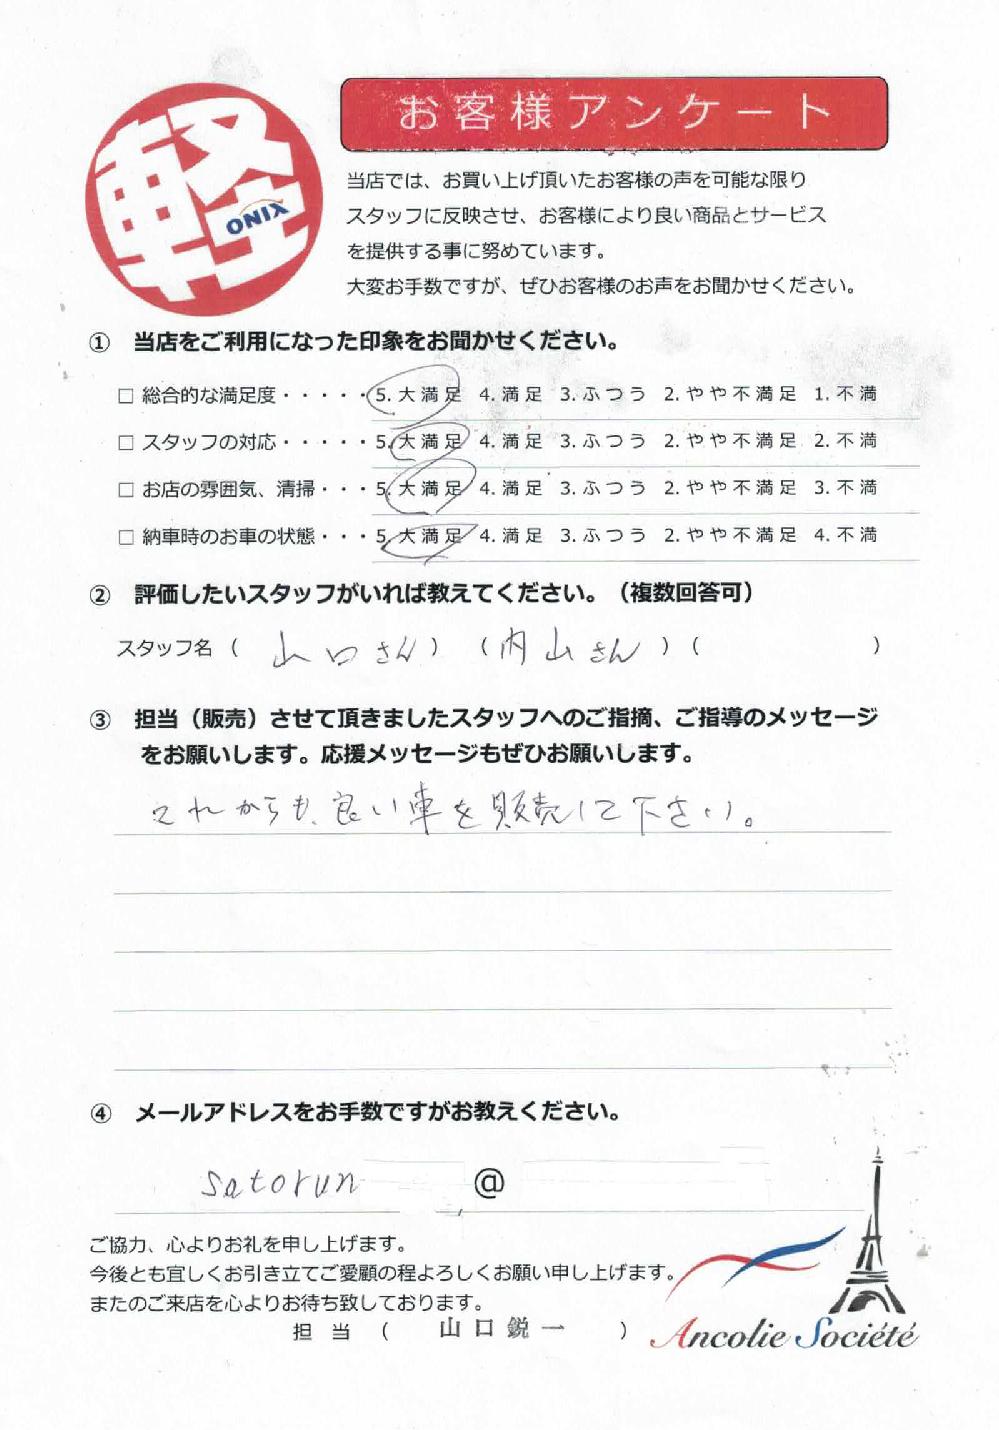 軽
ONIX
お客様アンケート
当店では、お買い上げ頂いたお客様の声を可能な限り
スタッフに反映させ、お客様により良い商品とサービス
を提供する事に努めています。
大変お手数ですが、ぜひお客様のお声をお聞かせください。
① 当店をご利用になった印象をお聞かせください。
□ 総合的な満足度・・・・・5.大満足 4.満足 3.ふつう 2.やや不満足 1.不満
□ スタッフの対応・・・・・5.大満足 4.満足 3.ふつう 2.やや不満足 2.不満
□ お店の雰囲気、清掃・・・5.大満足 4.満足 3.ふつう 2.やや不満足 3.不満
□ 納車時のお車の状態・・・5.大満足 4.満足 3.ふつう 2.やや不満足 4.不満
② 評価したいスタッフがいれば教えてください。（複数回答可）
スタッフ名（ 山口さん ）（ 内山さん ）（ ）
③ 担当（販売）させて頂きましたスタッフへのご指摘、ご指導のメッセージ
をお願いします。応援メッセージもぜひお願いします。
これからも、良い車を販売して下さい。
④ メールアドレスをお手数ですがお教えください。
satorun @
ご協力、心よりお礼を申し上げます。
今後とも宜しくお引き立てご愛顧の程よろしくお願い申し上げます。
またのご来店を心よりお待ち致しております。
担当（ 山口鋭一 ）
Ancolie Société